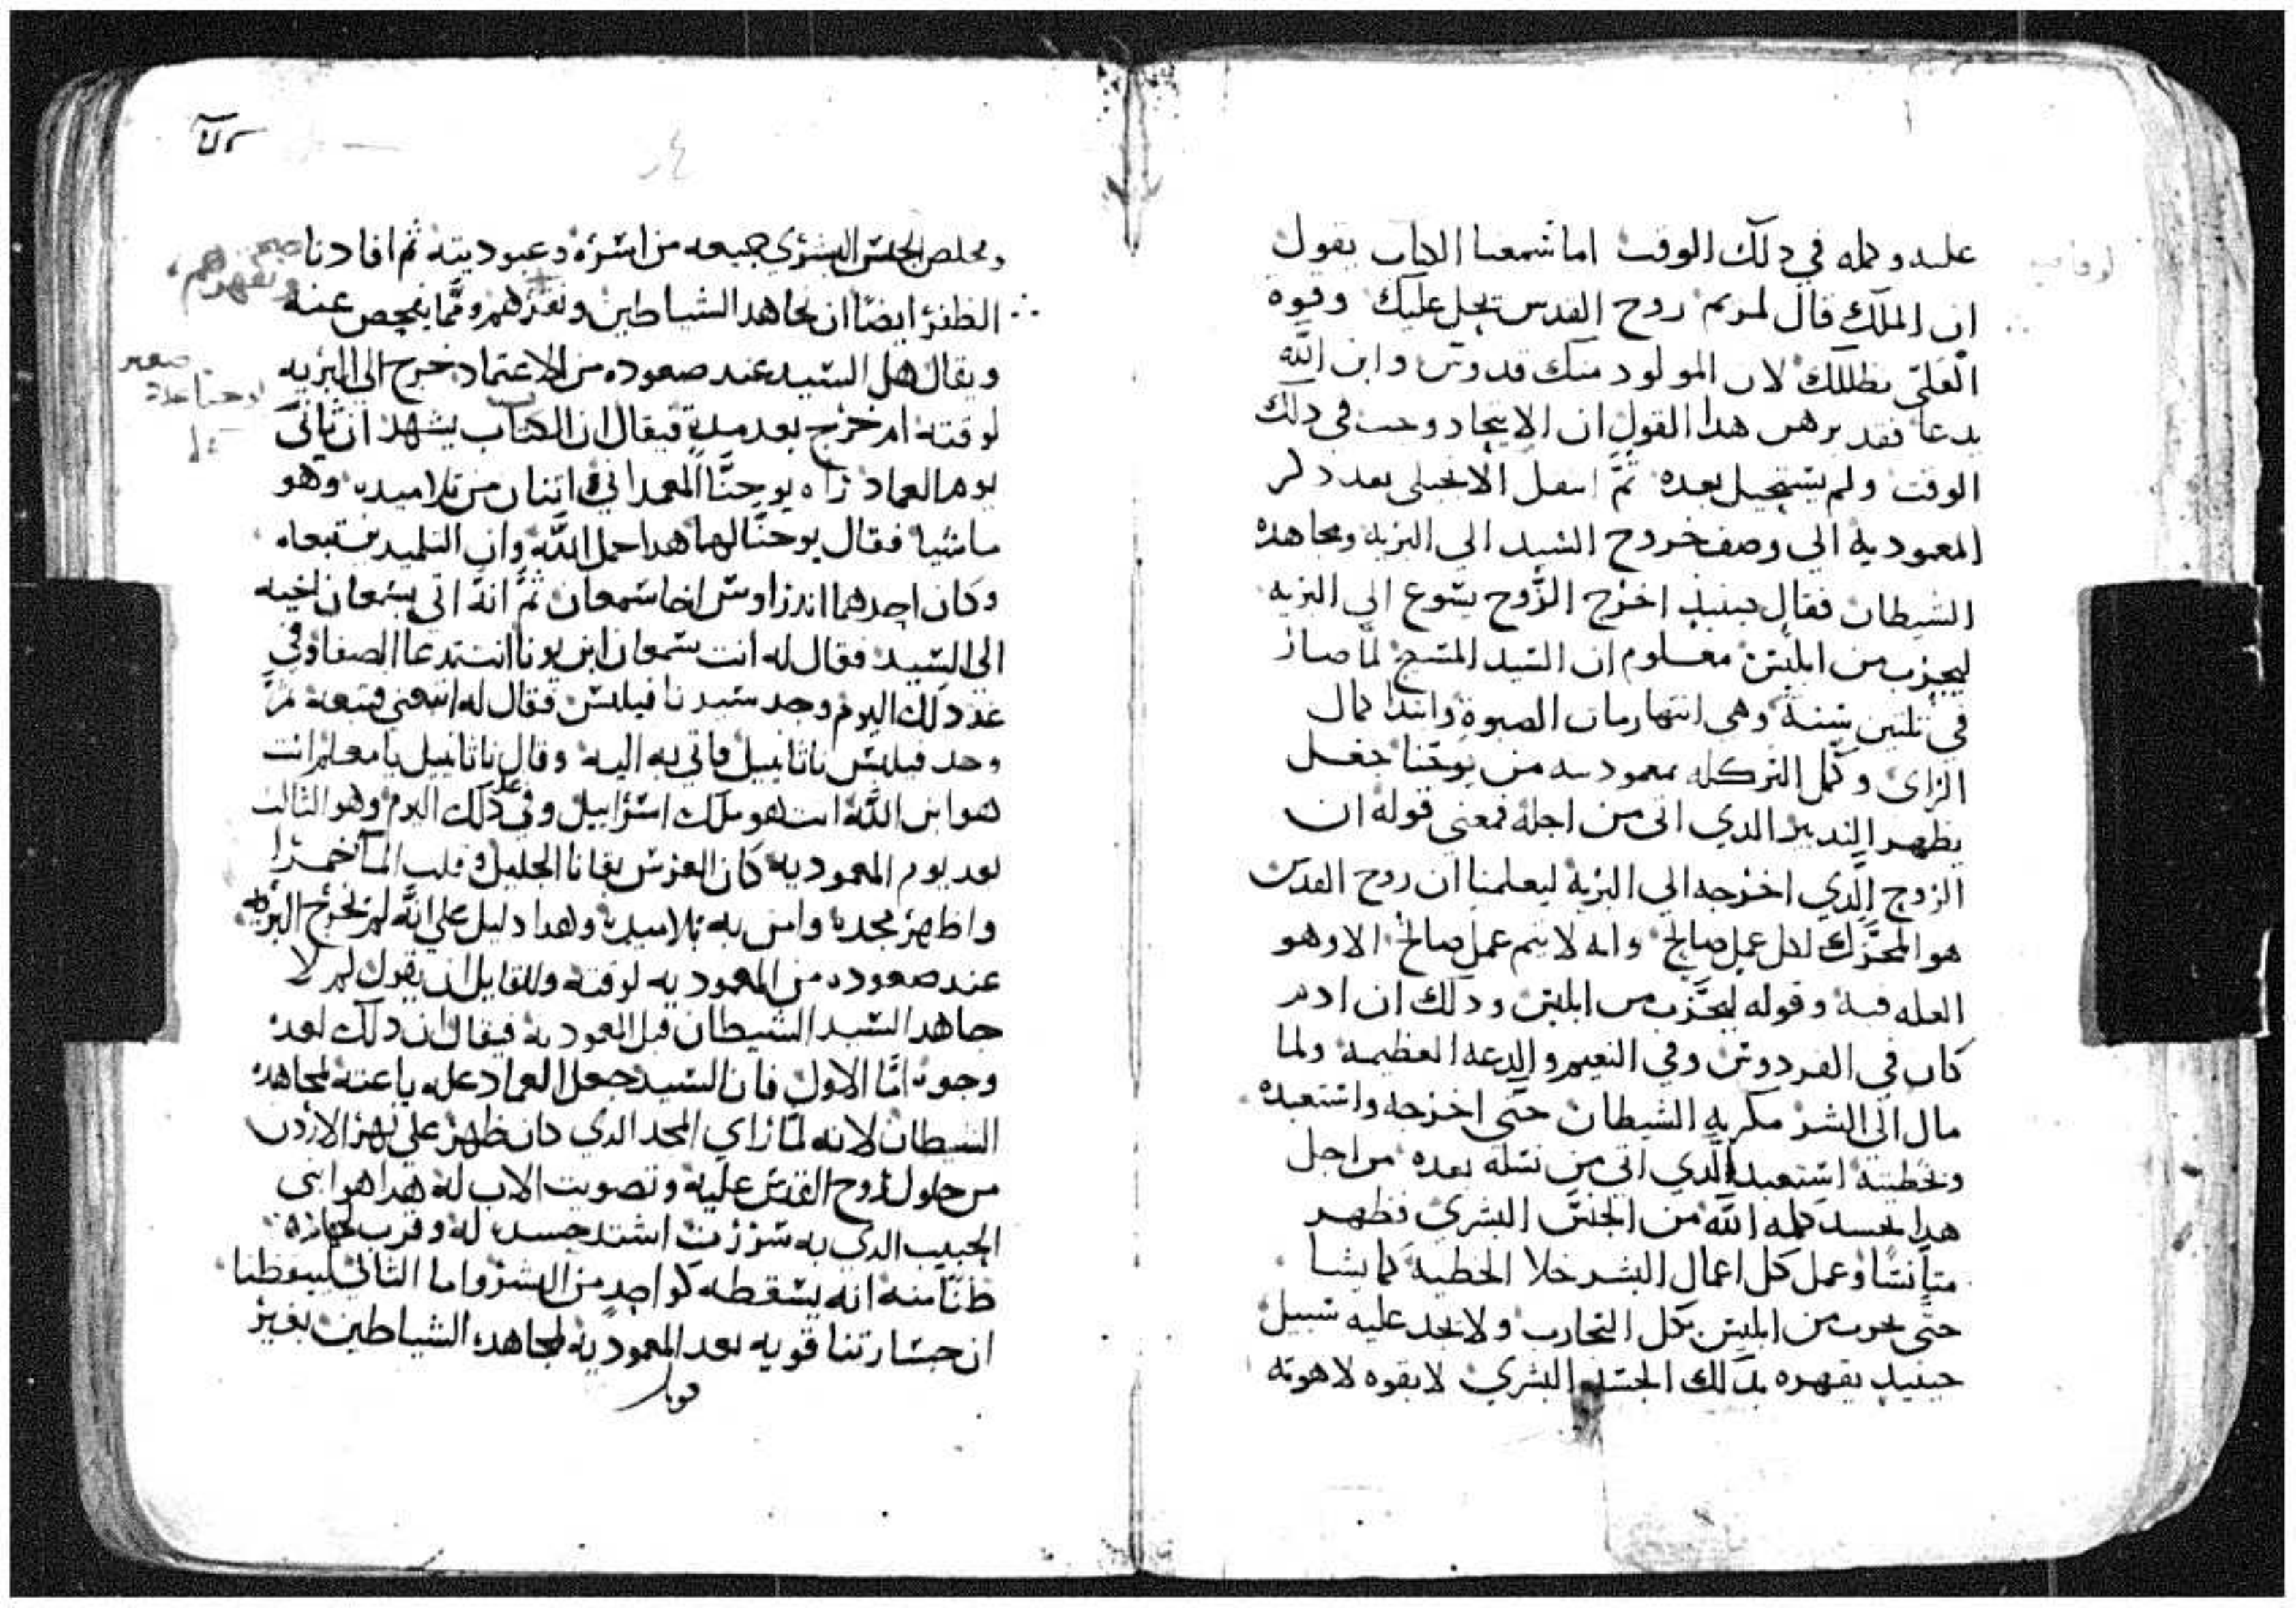 علىه وكمله في دلك الوقت اما سمعنا الكتاب يقول
ان الملاك قال لمريم روح القدس تحل عليك وقوة
العلي تظللك لان المولود منك قدوس وابن الله
يدعا فقد برهن هدا القول ان الاتحاد وجب في دلك
الوقت ولم يستحيل بعده ثم انتقل الانجيلي بعد دكر
المعموديه الى وصف خروج السيد الى البريه ومجاهده
الشيطان فقال حينيد اخرج الروح يسوع الى البريه
ليجرب من ابليس معلوم ان السيد المسيح لما صار
في تلتين سنة وهي انتها زمان الصبوة وابتدا كمال
الراى وكمل البر كله بمعموديته من يوحنا جعل
يظهر التدبير الدي اتى من اجله فمعنى قوله ان
الروح الدي اخرجه الى البرية ليعلمنا ان روح القدس
هو المحرك لكل عمل صالح وانه لا يتم عمل صالح الا وهو
العله فيه وقوله ليجرب من ابليس ودلك ان ادم
كان في الفردوس وفي النعيم والدعه العظيمه ولما
مال الى الشر مكر به الشيطان حتى اخرجه واستعبده
وبخطيته استعبد الدي اتى من نسله بعده من اجل
هدا تجسد كلمه الله من الجنس البشري فظهر
متانسا وعمل كل اعمال البشر خلا الخطية كما يشا
حتى يجرب من ابليس بكل التجارب ولا يجد عليه سبيل
حينيد يقهره بدلك الجسد البشري لا بقوه لاهوته
ويخلص الجنس البشري جميعه من اسره وعبوديته ثم افادنا
الظفر ايضا ان نجاهد الشياطين ومما يفحص عنه
ويقال هل السيد عند صعوده من الاعتماد خرج الى البريه
لوقته ام خرج بعد مدة فيقال ان الكتاب يشهد ان تاني
يوم العماد راه يوحنا المعمداني واتنان من تلاميده وهو
ماشيا فقال يوحنا لهما هدا حمل الله وان التلميدين تبعاه
وكان احدهما اندراوس اخا سمعان ثم انه اتى بسمعان اخيه
الى السيد فقال له انت سمعان ابن يونا انت تدعا الصفا وفي
غد دلك اليوم وجد سيدنا فيلبس فقال له اتبعني فتبعه ثم
وجد فيلبس ناتانييل فاتى به اليه وقال ناتانييل يا معلم انت
هو ابن الله انت هو ملك اسراييل وفي غد دلك اليوم وهو التالت
بعد يوم المعموديه كان العرس بقانا الجليل وقلب الما خمرا
واظهر مجده وامن به تلاميده وهدا دليل على انه لم يخرج البريه
عند صعوده من المعموديه لوقته وللقايل ان يقول لم لا
جاهد السيد الشيطان قبل المعموديه فيقال ان دلك لعدة
وجوه اما الاول فان السيد جعل العماد عله باعته لمجاهده
الشيطان لانه لما راي المجد الدي كان ظهر على نهر الاردن
من حلول روح القدس عليه وتصويت الاب له هدا هو ابني
الحبيب الدي به سررت اشتد حسده له وقرب لحياره
ظنا منه انه يسقطه كواحد من البشر واما التاني ليوعظنا
ان جسارتنا قويه بعد المعموديه لمجاهده الشياطين بغير